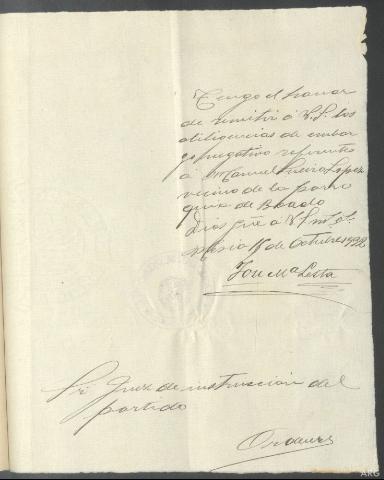 Tengo el honor
de remitir á V.S. las
diligencias de embar
go negativo referentes
á Manuel Lopez
vecino de la parro
quia de Boado
Dios gũe á V.S. m.s a.s
de Octubre 1932
José Mª Lesta
Sr Juez de instrucción del
partido
Ordenes
ARG